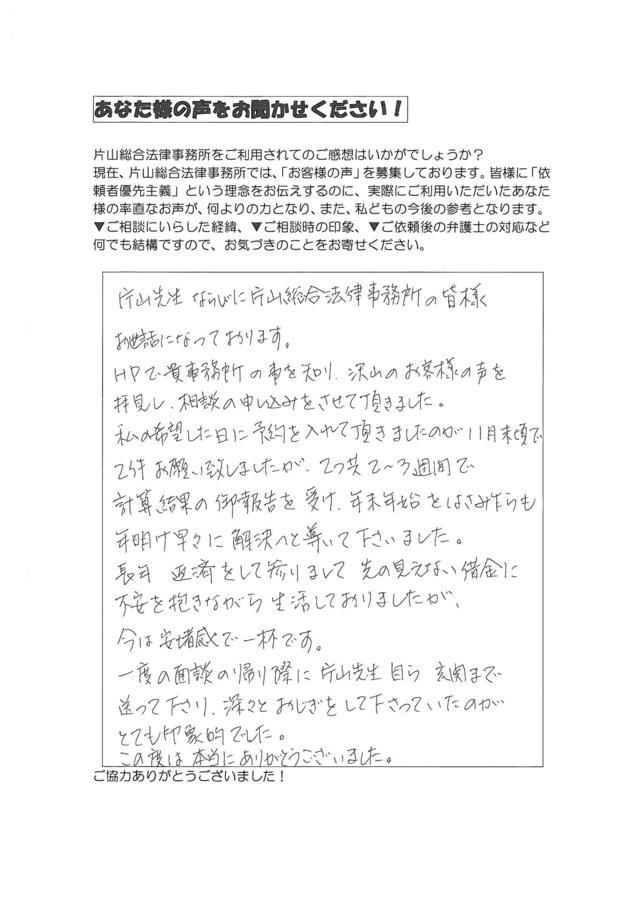 あなた様の声をお聞かせください！
片山総合法律事務所をご利用されてのご感想はいかがでしょうか？
現在、片山総合法律事務所では、「お客様の声」を募集しております。皆様に「依
頼者優先主義」という理念をお伝えするのに、実際にご利用いただいたあなた
様の率直なお声が、何よりの力となり、また、私どもの今後の参考となります。
▼ご相談にいらした経緯、▼ご相談時の印象、▼ご依頼後の弁護士の対応など
何でも結構ですので、お気づきのことをお寄せください。
片山先生 ならびに片山総合法律事務所の皆様
お世話になっております。
HPで貴事務所の事を知り、沢山のお客様の声を
拝見し、相談の申し込みをさせて頂きました。
私の希望した日に予約を入れて頂きましたのが11月末頃で
2件お願い致しましたが、2つ共2～3週間で
計算結果の御報告を受け、年末年始をはさみ乍らも
年明け早々に解決へと導いて下さいました。
長年 返済をして参りまして 先の見えない借金に
不安を抱きながら生活しておりましたが、
今は安堵感で一杯です。
一度の面談の帰り際に片山先生自ら 玄関まで
送って下さり、深々とおじぎをして下さっていたのが
とても印象的でした。
この度は本当にありがとうございました。
ご協力ありがとうございました！